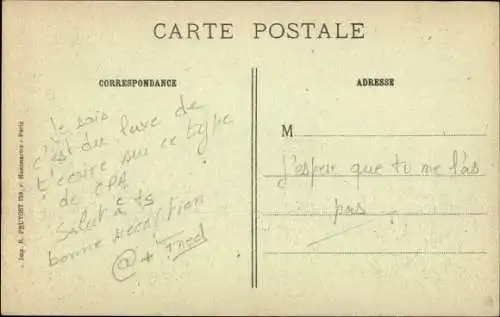 CARTE POSTALE
CORRESPONDANCE
Je sais
c'est du luxe de
t'écrire sur ce type
de CPA
Salut à ts
bonne réception
@ + Fred
ADRESSE
M
j'espère que tu me l'as
pas
Imp. E. PRUVOST 159, r. Montmartre - Paris